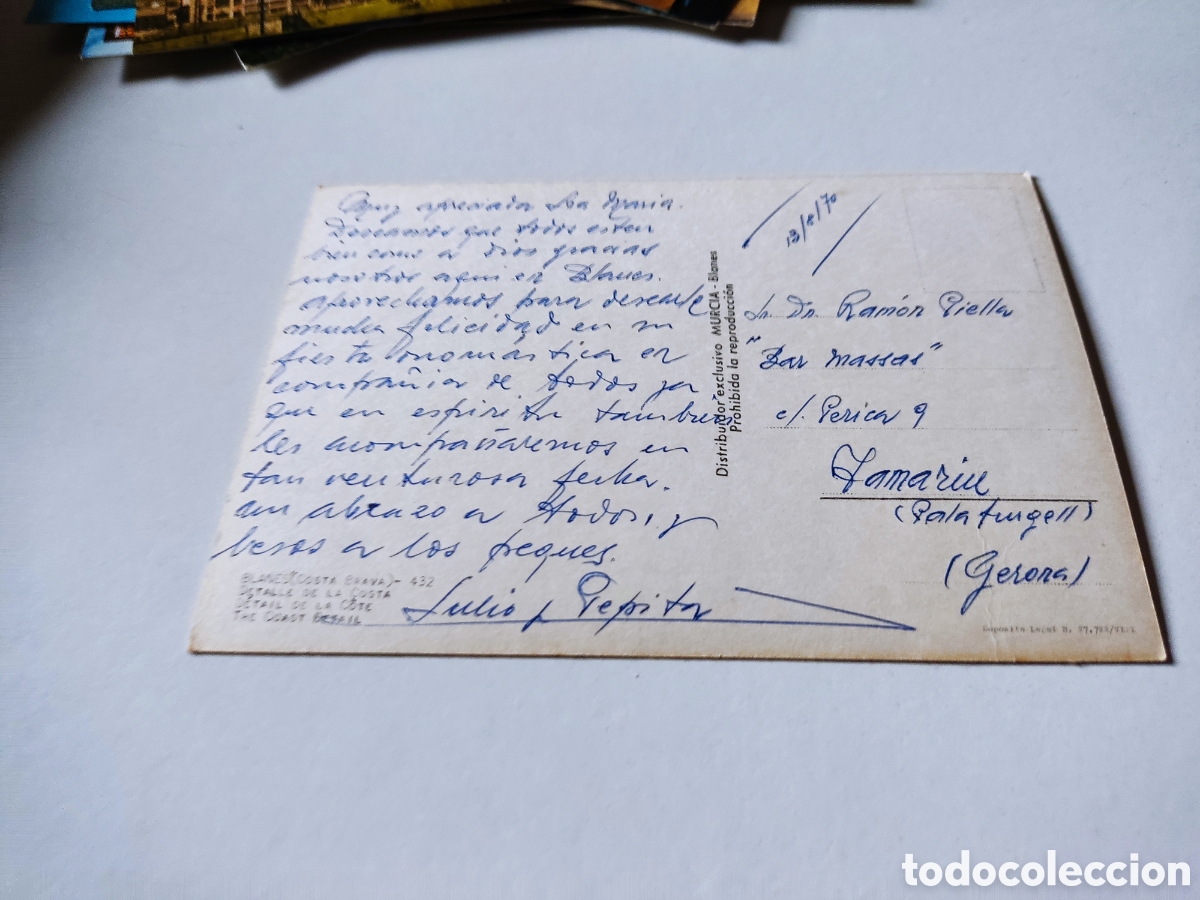 Muy apreciada Sra Maria.
Deseamos que todos esten
bien como a Dios gracias
nosotros aqui en Blanes.
aprovechamos para desearle
mucha felicidad en su
fiesta onomástica en
compañia de todos ya
que en espiritu tambien
les acompañaremos en
tan venturosa fecha.
un abrazo a todos, y
besos a los peques.
Julio y Pepita
BLANES (COSTA BRAVA) - 432
DETALLE DE LA COSTA
DETAIL DE LA CÔTE
THE COAST DETAIL
Distribuidor exclusivo MURCIA - Blanes
Prohibida la reproducción
13/8/70
Sr. Dn. Ramón Piella
"Bar Massas"
c/. Perica 9
Tamariu
(Palafurgell)
(Gerona)
Depósito Legal B.
todocoleccion